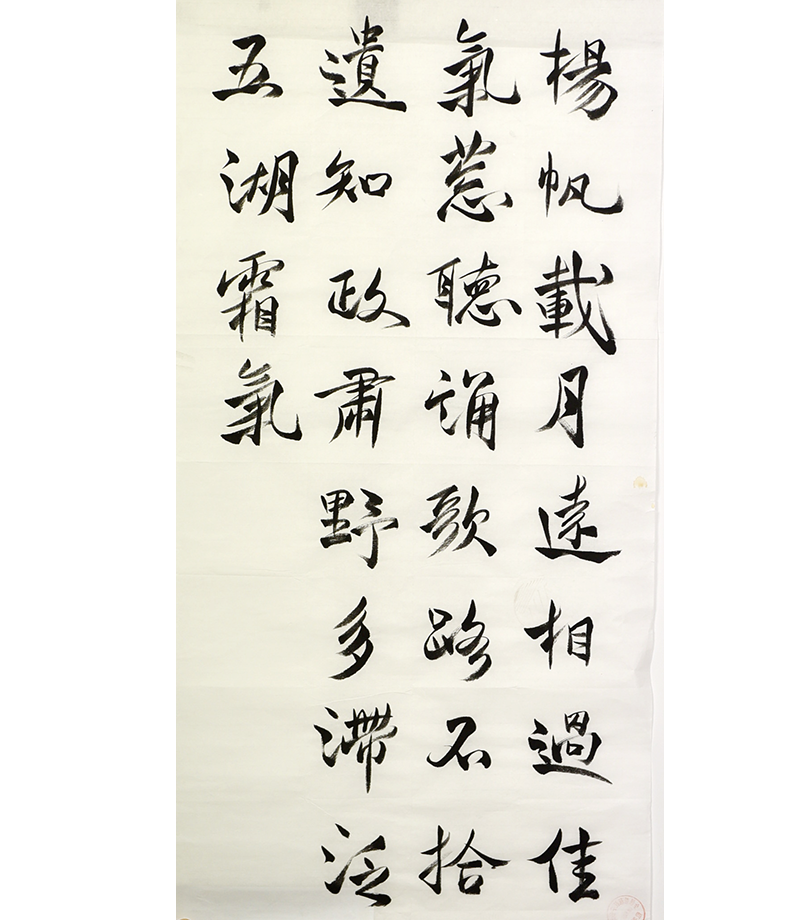 楊帆載月遠相過佳
氣葱聽誦歌路不拾
遺知政肅野多滯泛
五湖霜氣